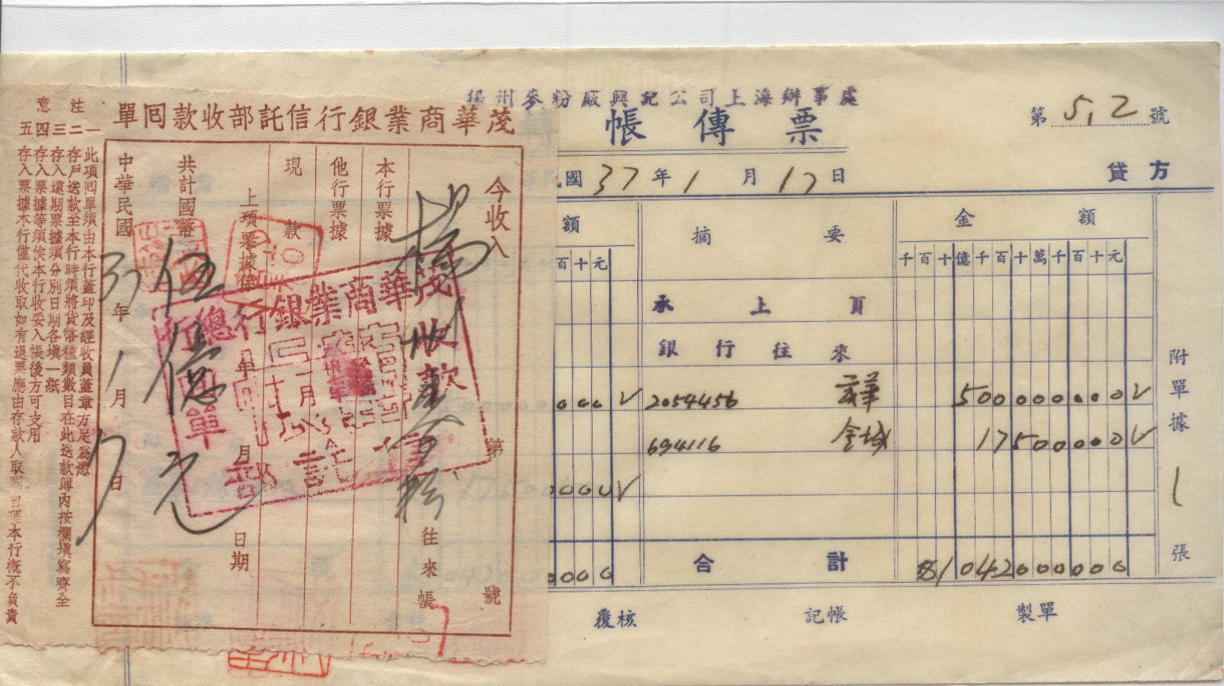 揚州麥粉廠興記公司上海辦事處
帳傳票
第5,2號
國37年1月17日
貸方
額
摘要
金額
百十元
千百十億千百十萬千百十元
承上頁
銀行往來
000√
2054456
5000000000√
694116
金城
175000000√
0000√
合計
0000
$1042000000
附單據1張
覆核
記帳
製單
茂華商業銀行信託部收款回單
今收入
揚州
第
號
往來帳
本行票據
他行票據
現款
上項票據係
年
月
日期
共計國幣
伍億元
中華民國
37年1月17日
茂華商業銀行總行
收款
回單
注意
一 此項回單須由本行蓋印及經收員蓋章方足為憑
二 存戶送款至本行時須將貨幣種類數目在此送款簿內按欄填寫齊全
三 存入遠期票據須分別日期各填一紙
四 存入票據等須俟本行收妥入帳後方可支用
五 存入票據本行僅代收取如有退票應由存款人取回自理本行概不負責